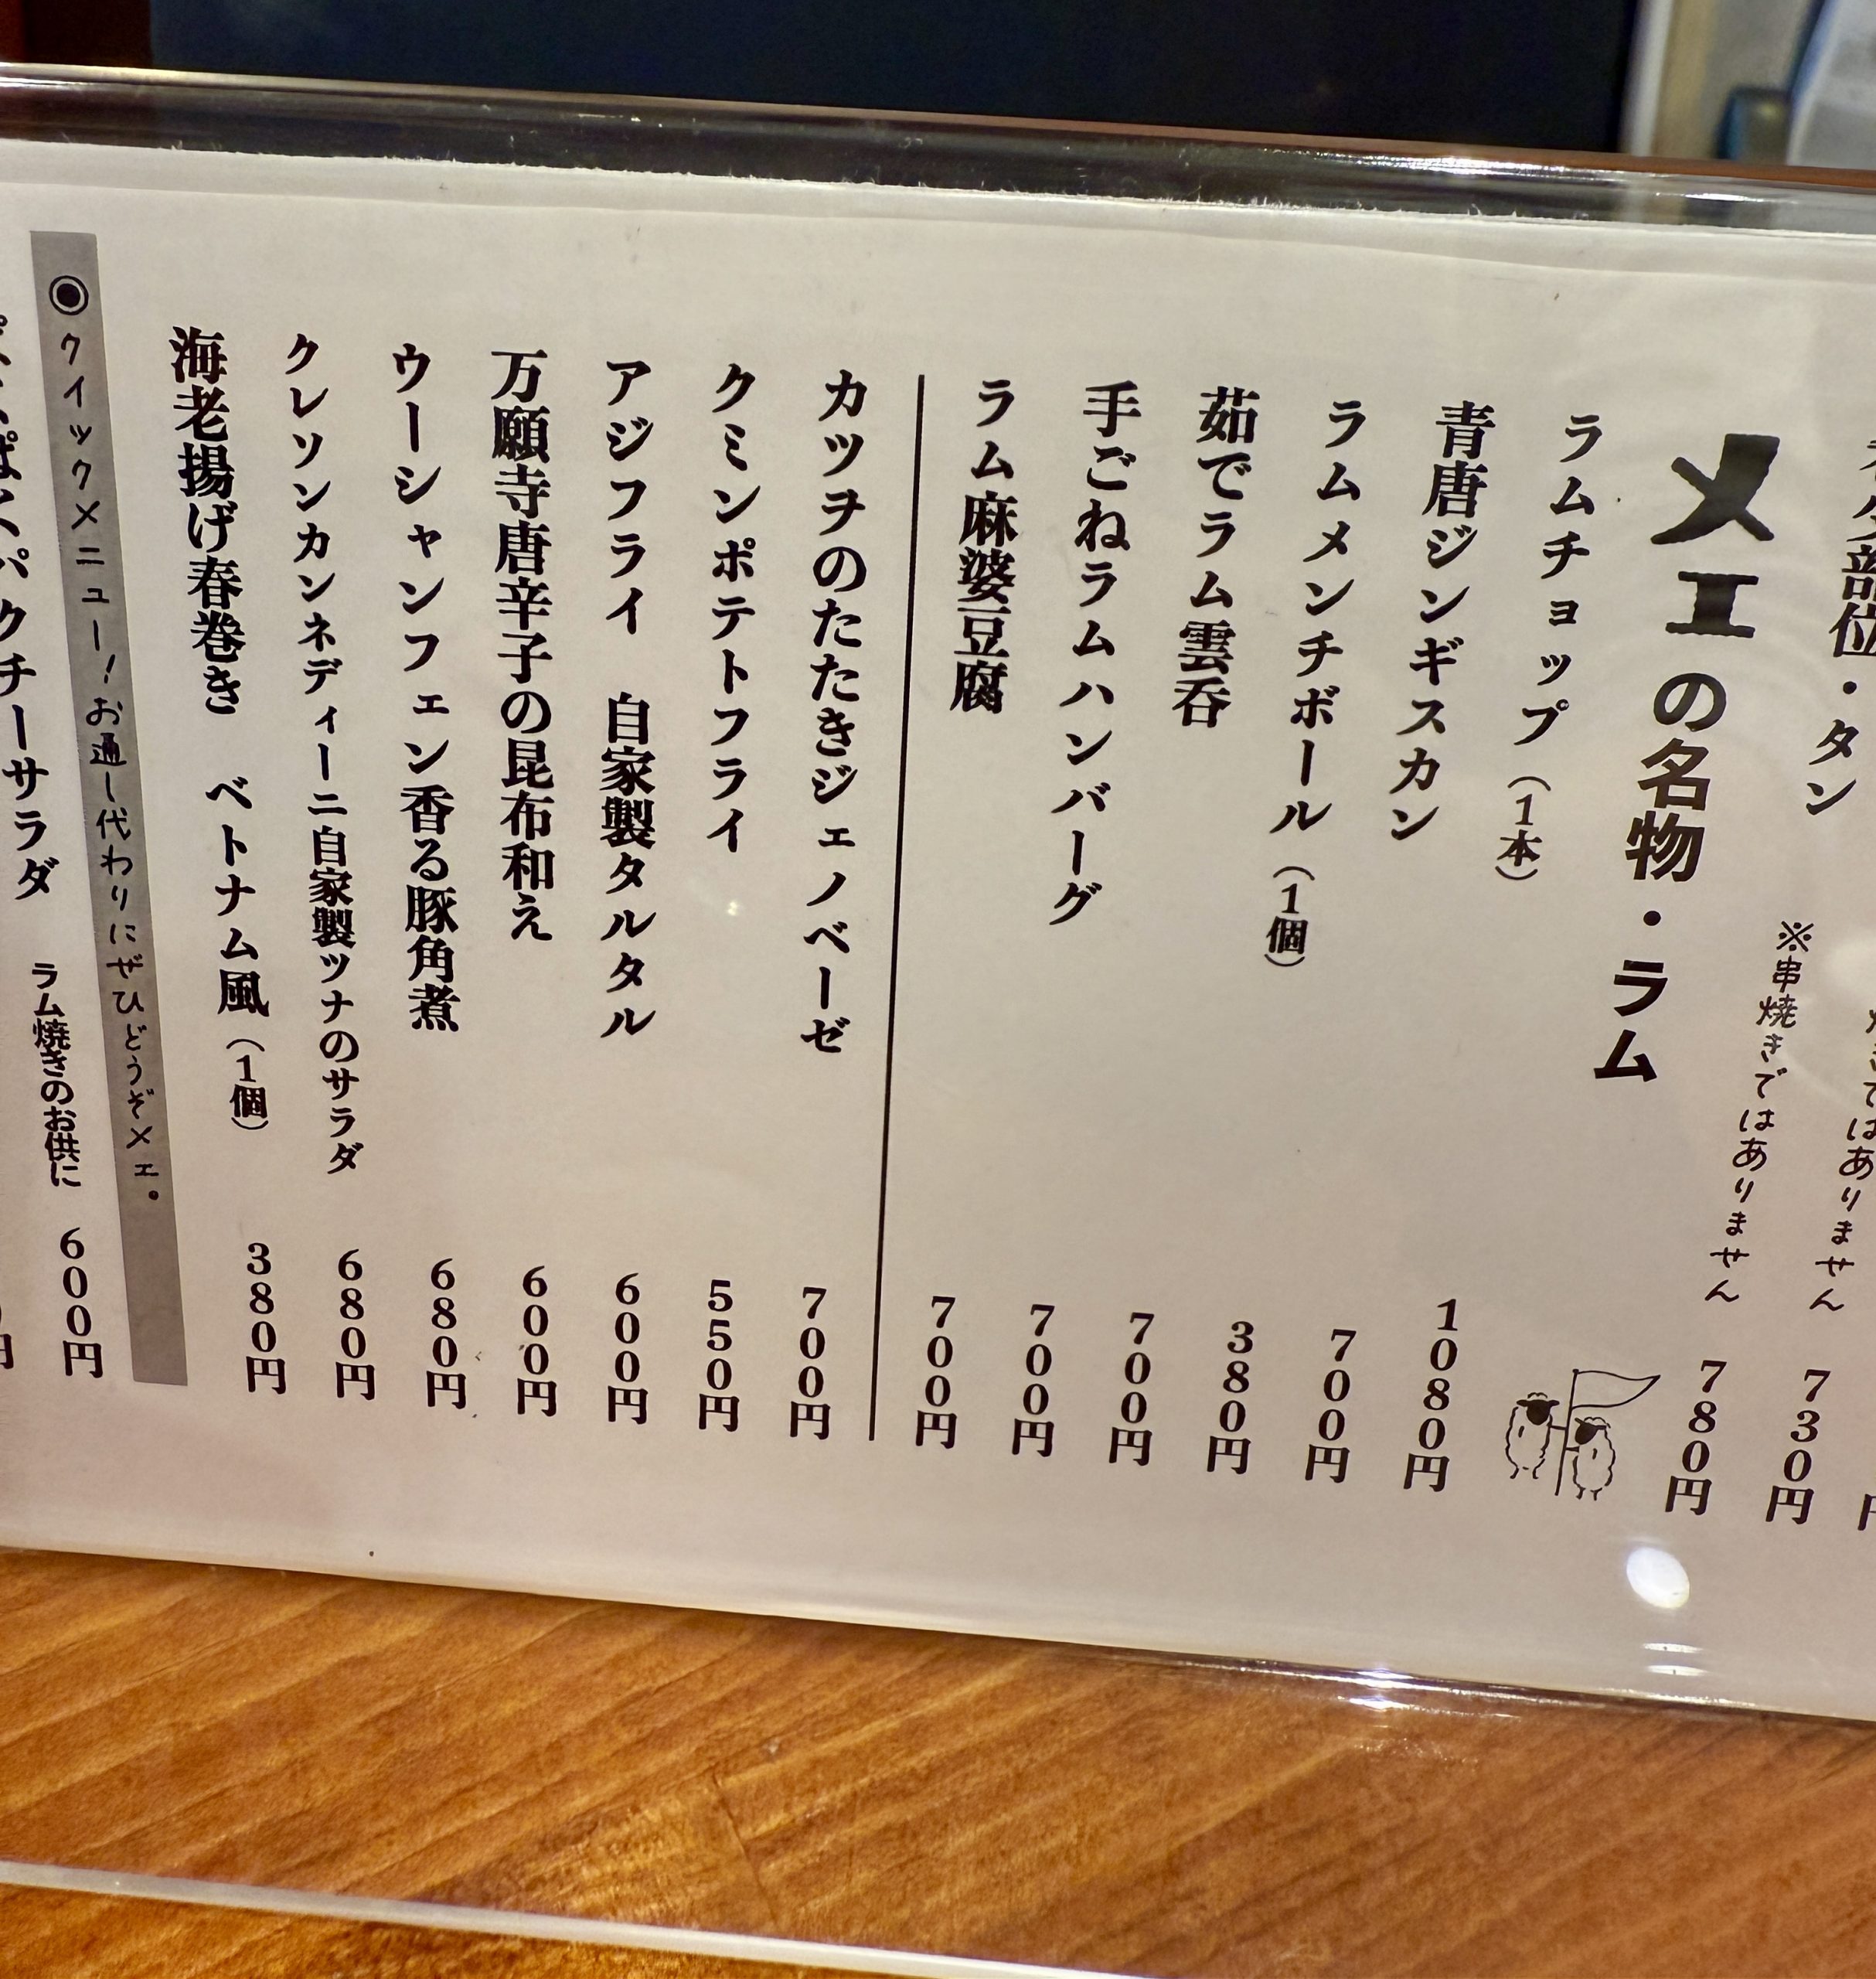 部位・タン
焼きではありません 730円
※串焼きではありません 780円
メエの名物・ラム
ラムチョップ（1本） 1080円
青唐ジンギスカン 700円
ラムメンチボール（1個） 380円
茹でラム雲呑 700円
手ごねラムハンバーグ 700円
ラム麻婆豆腐 700円
カツヲのたたきジェノベーゼ 700円
クミンポテトフライ 550円
アジフライ 自家製タルタル 600円
万願寺唐辛子の昆布和え 600円
ウーシャンフェン香る豚角煮 680円
クレソンカンネディーニ自家製ツナのサラダ 680円
海老揚げ春巻き ベトナム風（1個） 380円
◉クイックメニュー！お通し代わりにぜひどうぞメエ。
パクチーサラダ ラム焼きのお供に 600円
円